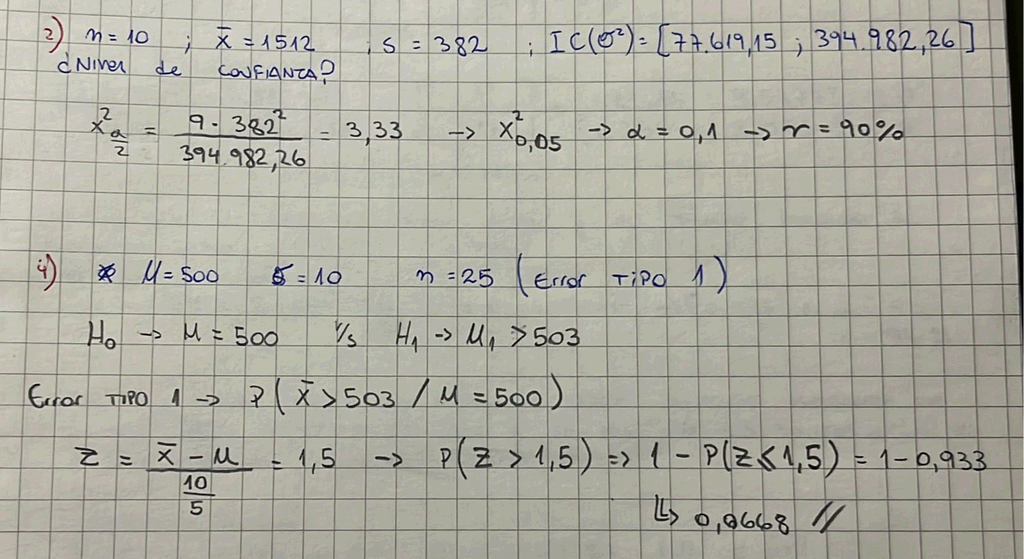 2) n = 10 ; x̄ = 1512 ; s = 382 ; IC(σ²) = [77.619,15 ; 394.982,26]
¿Nivel de CONFIANZA?
x²_{α/2} = \frac{9 · 382²}{394.982,26} = 3,33 → x²_{0,05} → α = 0,1 → r = 90%
4) M = 500 σ = 10 n = 25 (Error TIPO 1)
H₀ → M = 500 V/s H₁ → M₁ > 503
Error TIPO 1 → P(x̄ > 503 / M = 500)
Z = \frac{x̄ - M}{\frac{10}{5}} = 1,5 → P(Z > 1,5) ⇒ 1 - P(Z < 1,5) = 1 - 0,933
↳ 0,0668 //